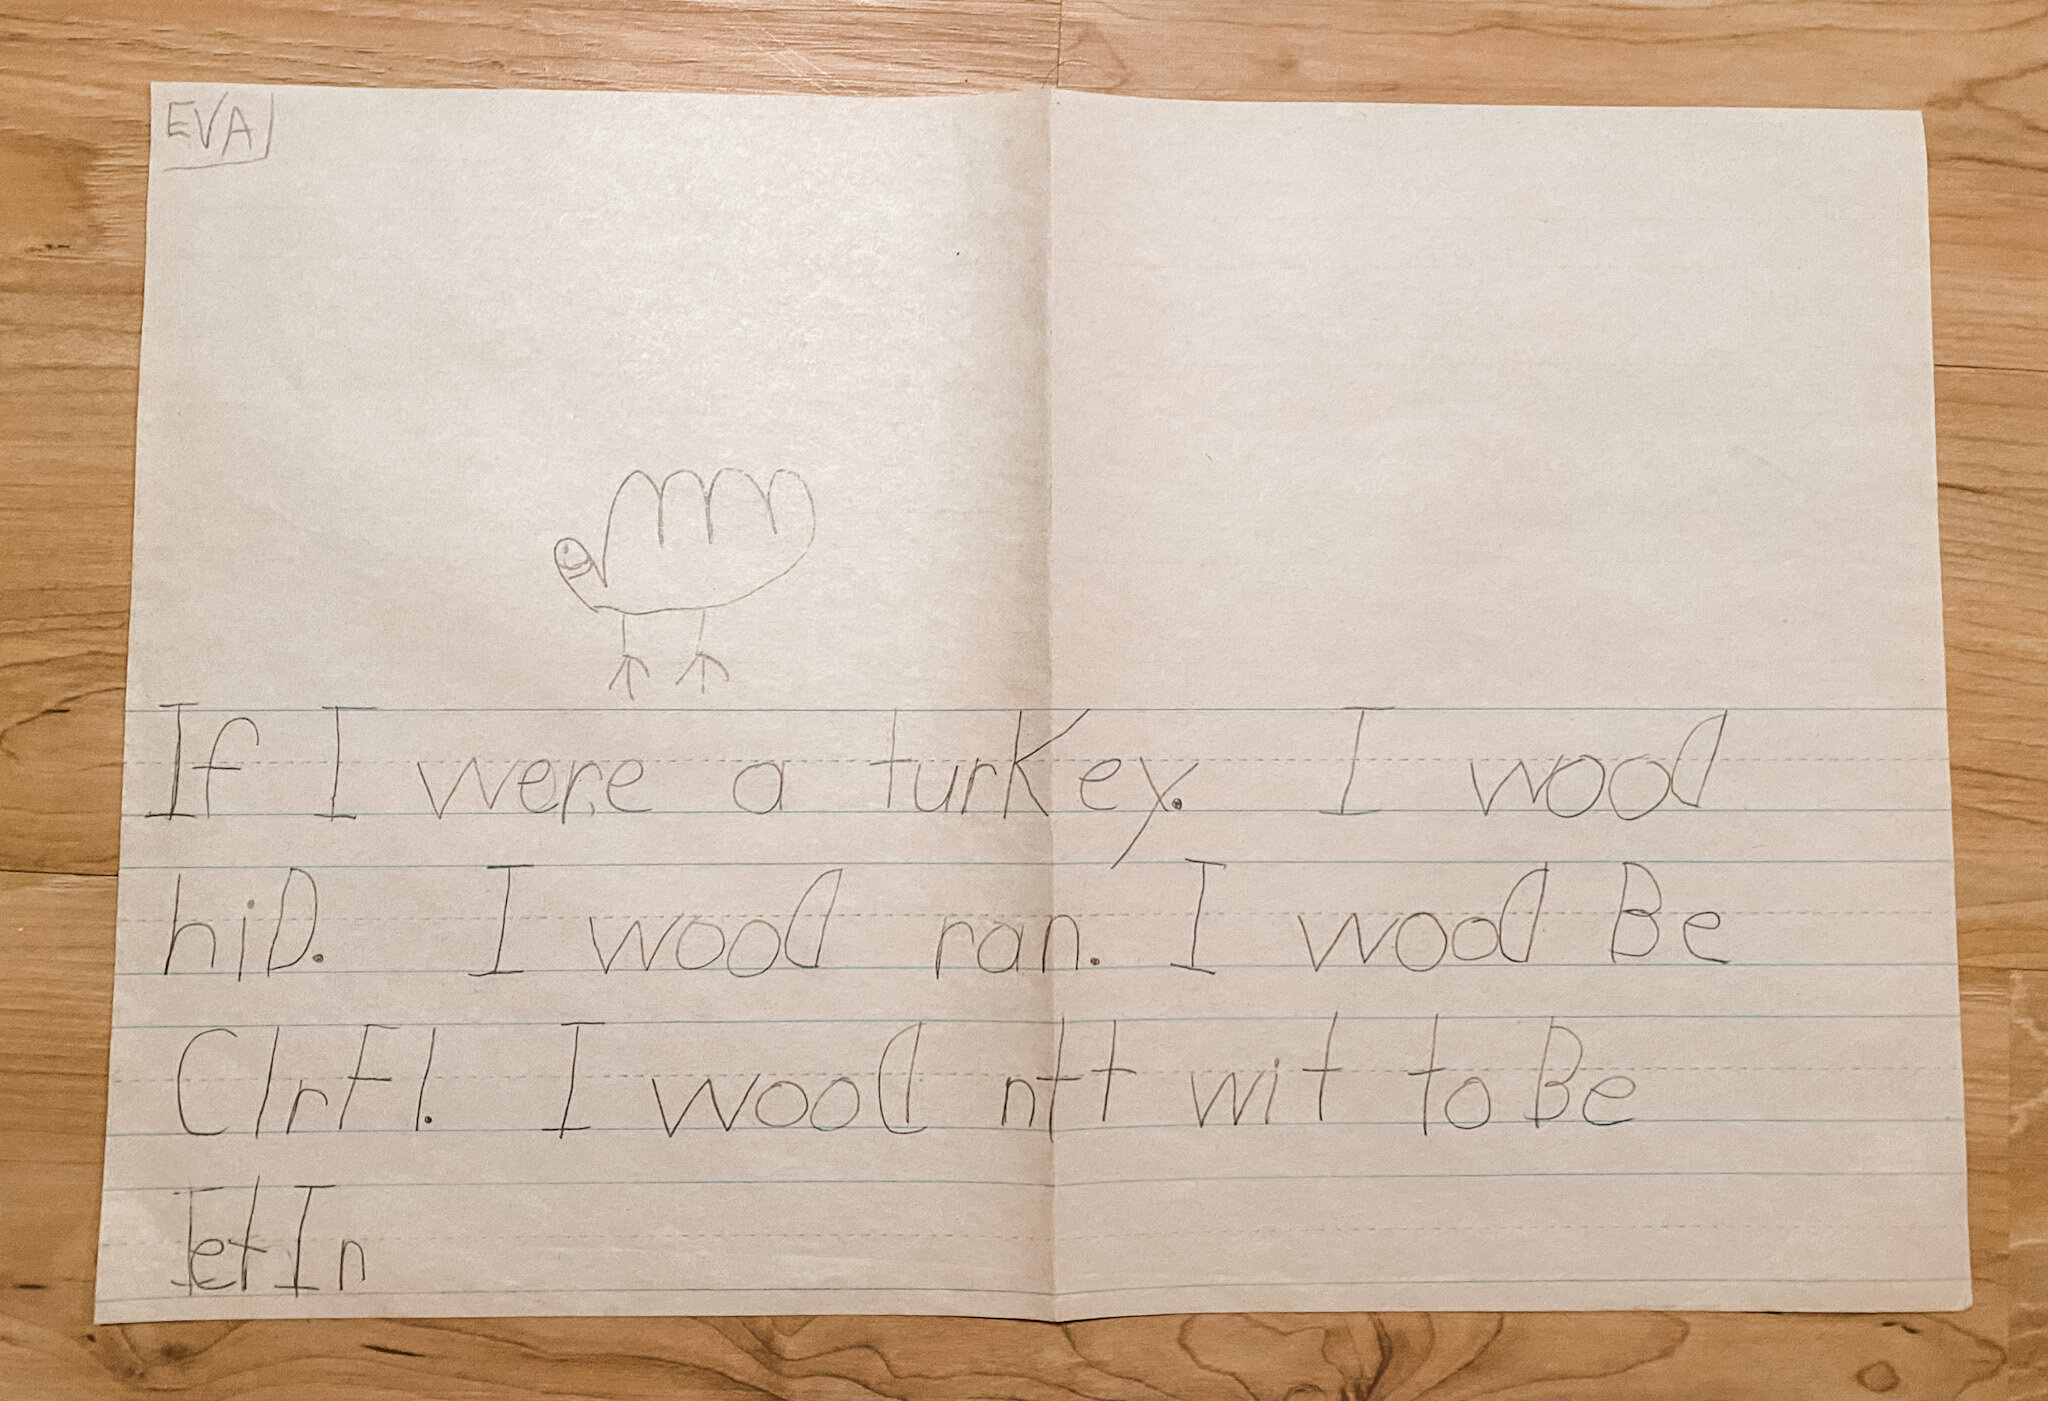 EVA
If I were a turKey. I wood
hiD. I wood ran. I wood Be
ClrFl. I wood ntt wit to Be
IetIn